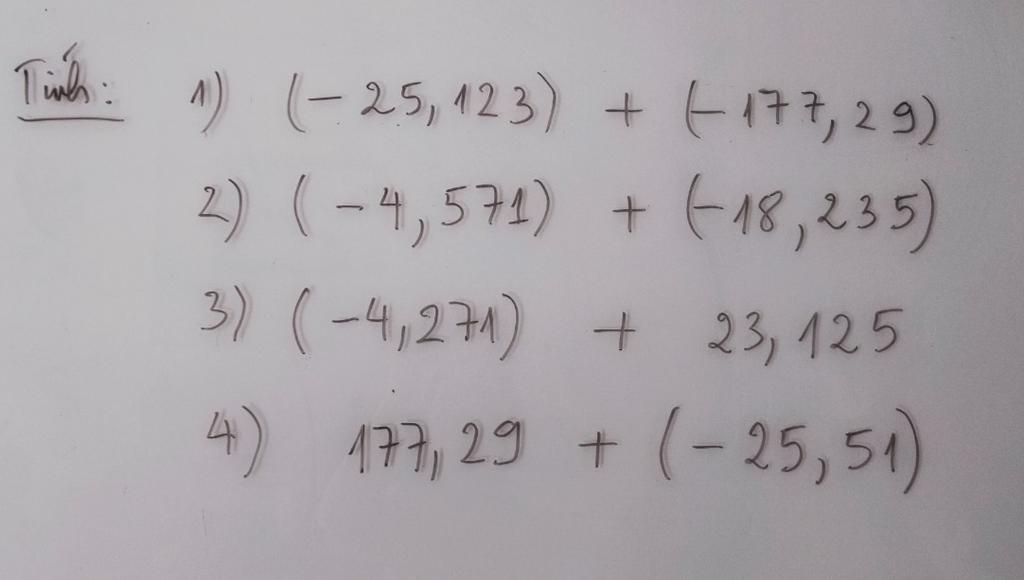 Tính: 1) (-25,123) + (-177,29)
2) (-4,571) + (-18,235)
3) (-4,271) + 23,125
4) 177,29 + (-25,51)